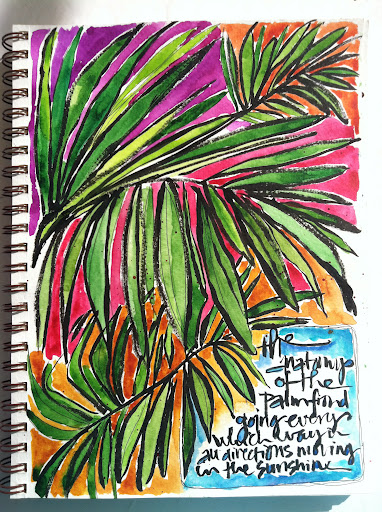 the
anatomy
of the
Palm frond
going every
which way in
all directions moving
in the sunshine